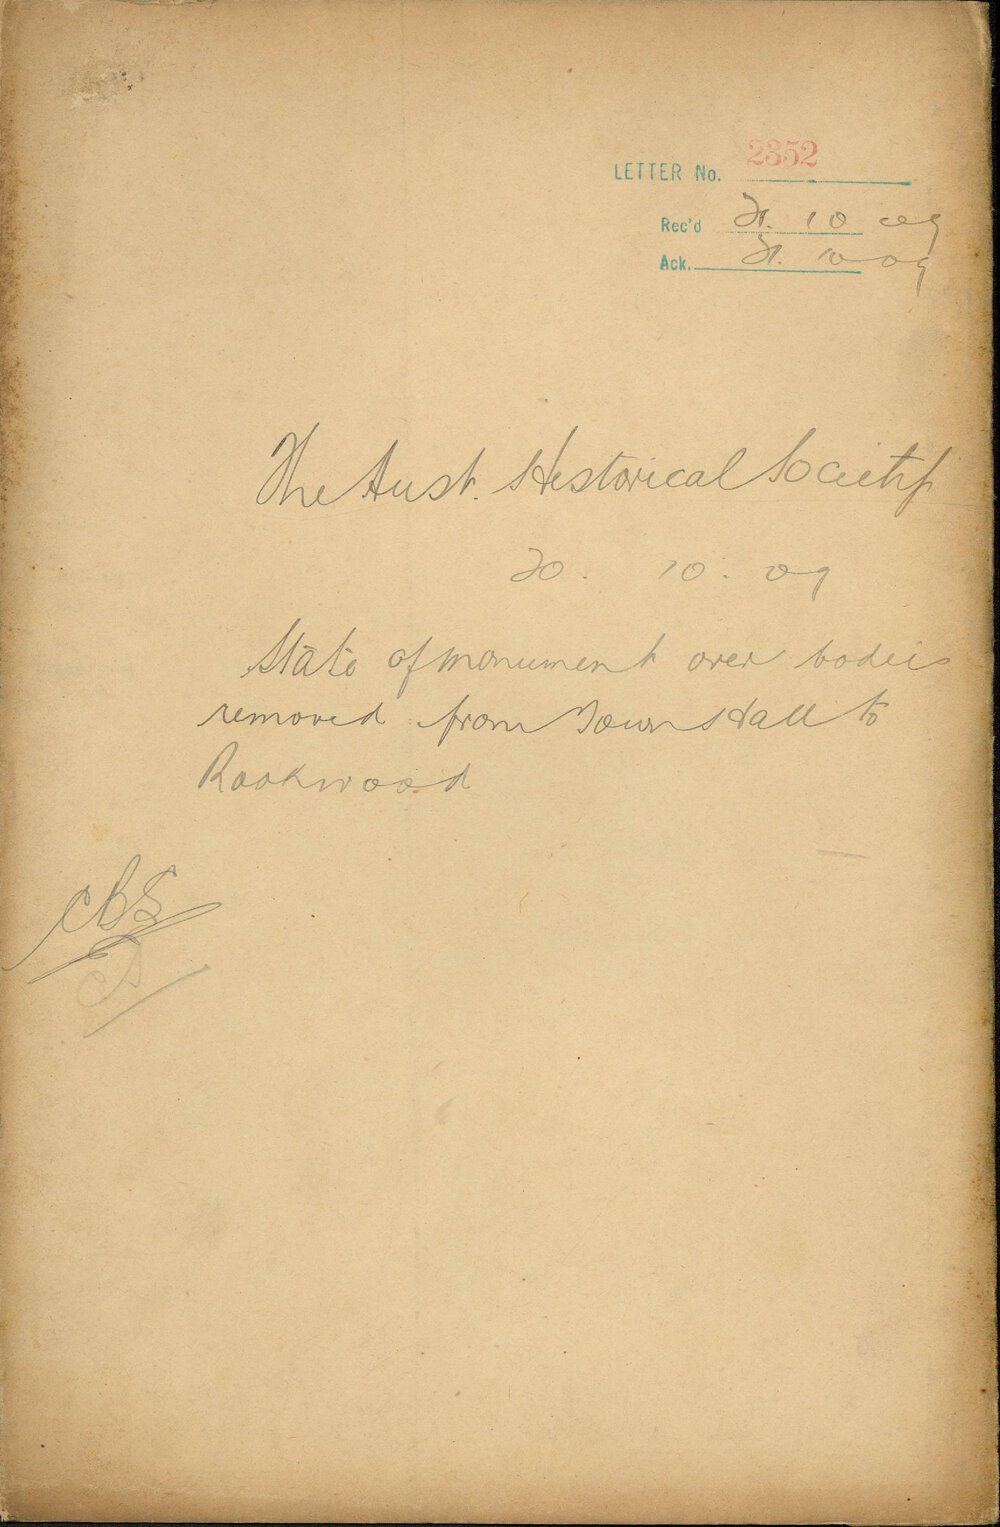 LETTER No. 2352
Rec'd 21. 10 09
Ack. 21. 10 09
The Aust. Historical Society
20. 10. 09
State of monument over bodies
removed from Town Hall to
Rookwood
CBS